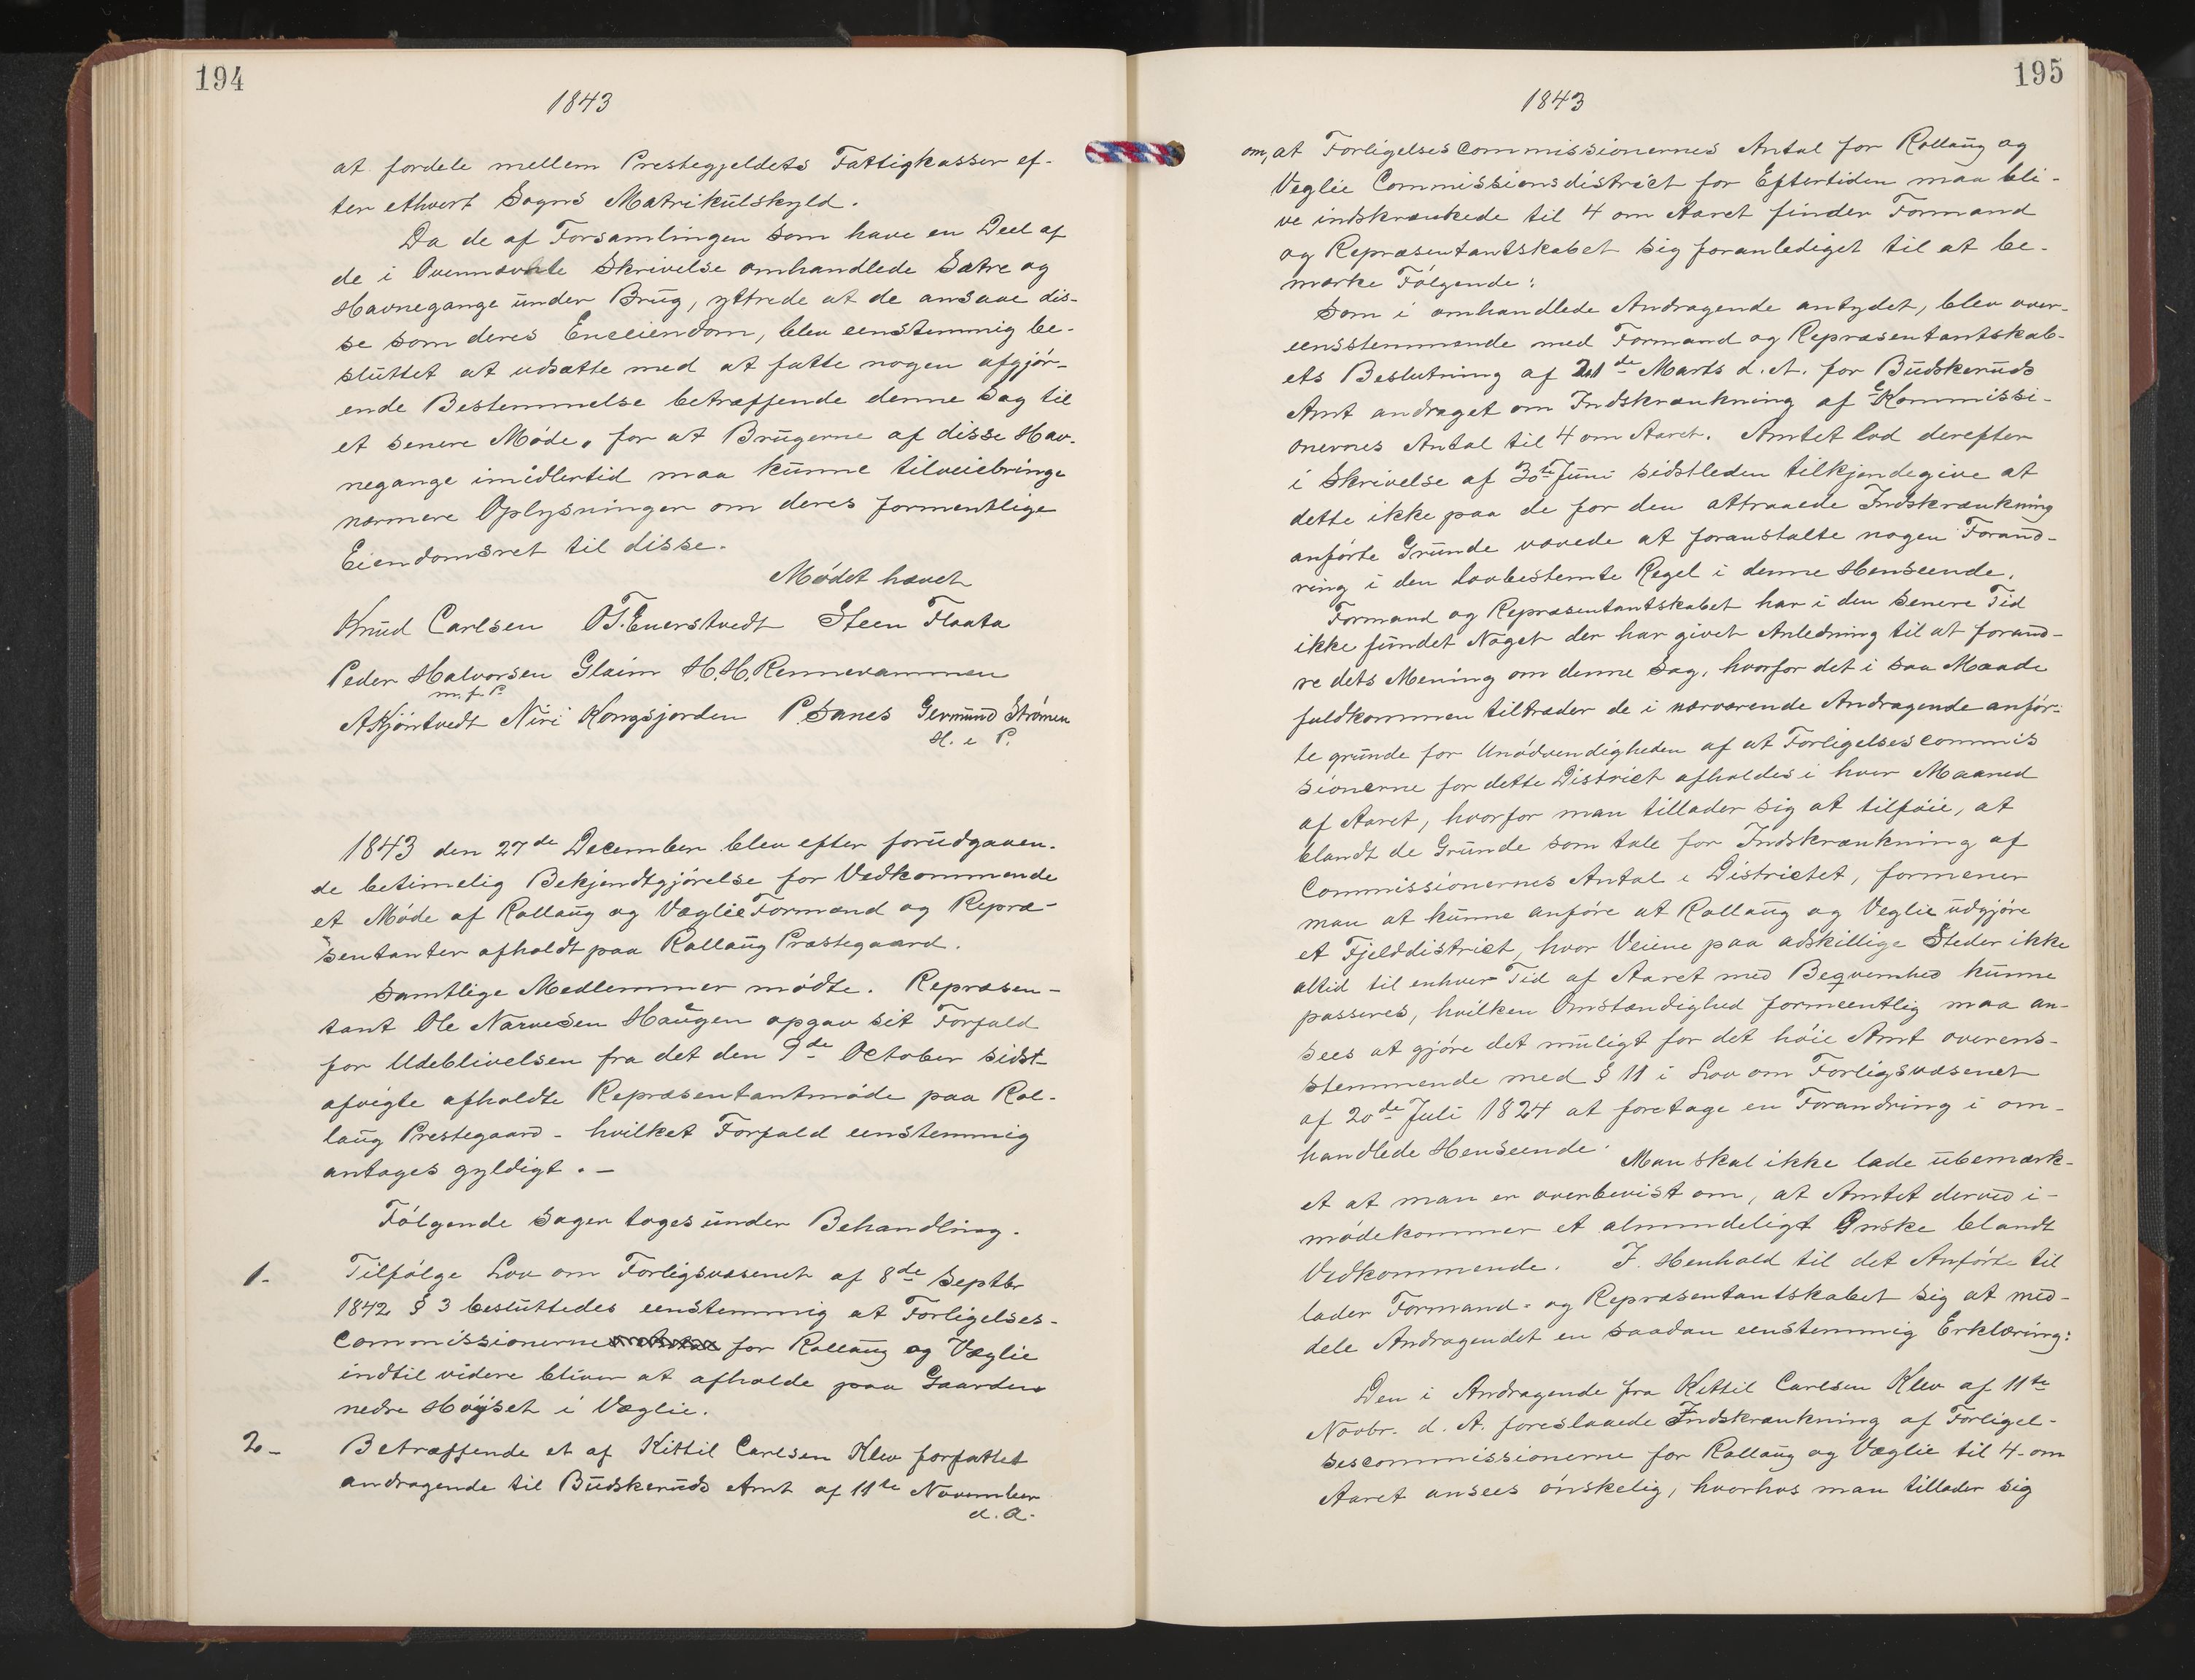 194
1843
at fordele mellem Prestegjeldets Fattigkasser ef-
ter ethvert Sogns Matrikülskyld.
Da de af Forsamlingen som have en Deel af
de i Ovennævnte Skrivelse omhandlede Sætre og
Havnegange ünder Brüg, yttrede at de ansaae dis-
se som deres Eneeiendom, blev eenstemmig be-
slüttet at udsætte med at fatte nogen afgjör-
ende Bestemmelse betræffende denne Sag til
et senere Möde, for at Brügerne af disse Hav-
negange imidlertid maa künne tilveiebringe
nærmere Oplysninger om deres formentlige
Eiendomsret til disse.
Mödet hævet
Knüd Carlsen O T. Enerstvedt Steen Flaata
Peder Halvorsen Glaim H. H. Rennevammen
m. f. P.
A Kjöntvedt Niri Kongsjorden P Sanes Germünd Strömen
H. e P.
1843 den 27de December blev efter forüdgaaen-
de betimelig Bekjendtgjörelse for Vedkommende
et Möde af Rollaüg og Væglie Formænd og Repræ-
sentanter afholdt paa Rollaüg Præstegaard.
Samtlige Medlemmer mödte. Repræsen-
tant Ole Narvesen Haügen opgav sit Forfald
for Udeblivelsen fra det den 9de October sidst-
afvigte afholdte Repræsentantmöde paa Rol-
laüg Prestegaard - hvilket Forfald eenstemmig
antages gyldigt. -
Fölgende Sager toges ünder Behandling.
1. Tilfölge Lov om Forligsvæsenet af 8de Septbr
1842 § 3 beslüttedes eenstemmig at Forligelses-
Commissionerne for Rollaüg og Væglie
indtil videre bliver at afholde paa Gaarden
nedre Höÿset i Væglie.
2 - Betræffende et af Kittil Carlsen Klev forfattet
andragende til Büdskerüds Amt af 11te November
d. A.
195
1843
om, at Forligelsescommissionernes Antal for Rollaüg og
Veglie Commissionsdistrict for Eftertiden maa bli-
ve indskrænkede til 4 om Aaret finder Formand
og Repræsentantskabet sig foranlediget til at be-
mærke Fölgende:
Som i omhandlede Andragende antydet, blev over-
eensstemmende med Formand og Repræsentantskab-
ets Beslutning af 21de Marts d. A. for Büdskerüds
Amt andraget om Indskrænkning af Kommissi-
onernes Antal til 4 om Aaret. Amtet lod derefter
i Skrivelse af 30te Jüni sidstleden tilkjendegive at
dette ikke paa de for den attraaede Indskrænkning
anförte Gründe vovede at foranstalte nogen Forand-
ring i den lovbestemte Regel i denne Henseende.
Formand og Repræsentantskabet har i den Senere Tid
ikke fündet Noget der har givet Anledning til at forand-
re dets Mening om denne Sag, hvorfor det i saa Maade
fuldkommen tiltræder de i nærværende Andragende anför-
te gründe for Unödvendigheden af at Forligelsescommis
sionerne for dette District afholdes i hver Maaned
af Aaret, hvorfor man tillader sig at tilföie, at
blandt de Gründe som tale for Indskrænkning af
Commissionernes Antal i Districtet, formener
man at künne anföre at Rollaüg og Veglie üdgjöre
et Fjelddistrict, hvor Veiene paa adskillige Steder ikke
altid til enhver Tid af Aaret med Beqvemhed künne
passeres, hvilken Omstændighed formeentlig maa an-
sees at gjöre det müligt for det höie Amt overens-
stemmende med § 11 i Lov om Forligsvæsenet
af 20de Juli 1824 at foretage en Forandring i om-
handlede Henseende. Man skal ikke lade übemærk-
et at man er overbevist om, at Amtet derved i-
mödekommer et almindeligt Önske blandt
Vedkommende. I Henhold til det Anförte til
lader Formand- og Repræsentantskabet sig at med-
dele Andragendet en saadan eenstemmig Erklæring:
Den i Andragende fra Kettil Carlsen Klev af 11te
Novbr. d. A. foreslaaede Indskrænkning af Forligel-
sescommissionerne for Rollaüg og Væglie til 4-om
Aaret ansees önskelig, hvorhos man tillader sig